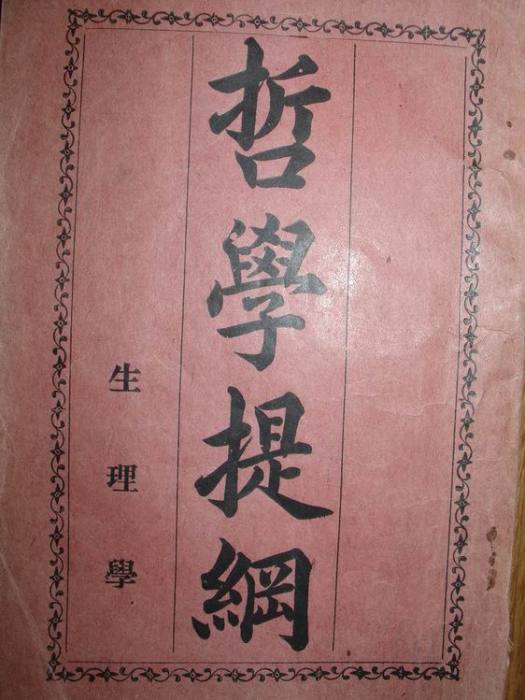 哲學提綱
生理學